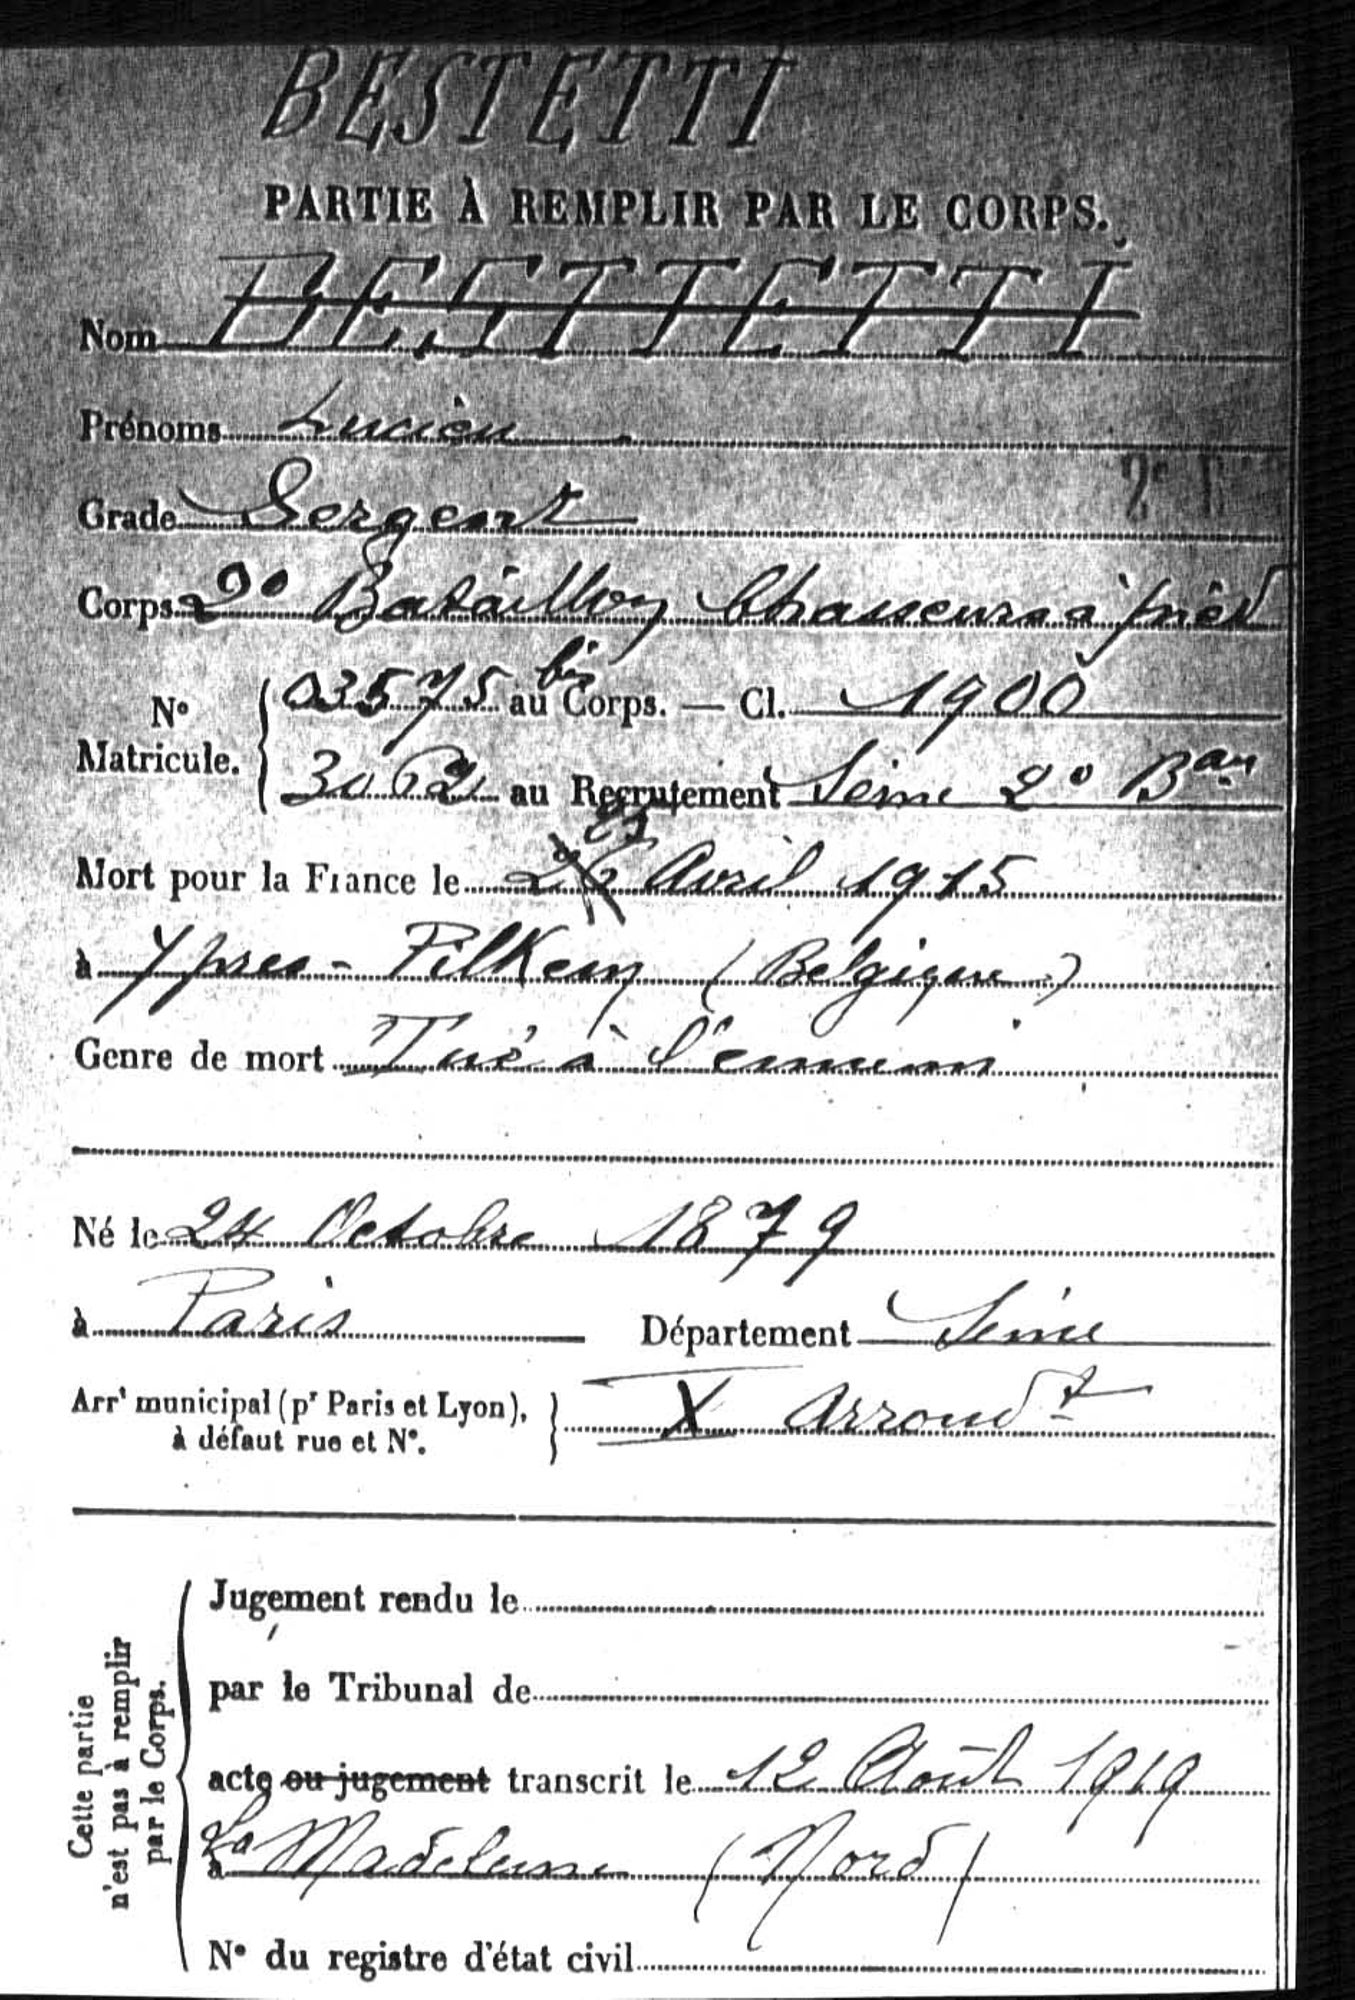 BESTETTI
PARTIE À REMPLIR PAR LE CORPS.
Nom BESTTETTI
Prénoms Lucien
Grade Sergent
Corps 2e Bataillon Chasseurs à pied
N° Matricule. 03575 bis au Corps. — Cl. 1900
3062 au Recrutement Seine 2e Bau
Mort pour la France le 26 Avril 1915
à Ypres - Pilkem (Belgique)
Genre de mort Tué à l'ennemi
Né le 24 Octobre 1879
à Paris Département Seine
Arrt municipal (pr Paris et Lyon), à défaut rue et N°. X Arrondt
Cette partie n'est pas à remplir par le Corps.
Jugement rendu le
par le Tribunal de
acte ou jugement transcrit le 12 Août 1919
à La Madeleine (Nord)
N° du registre d'état civil